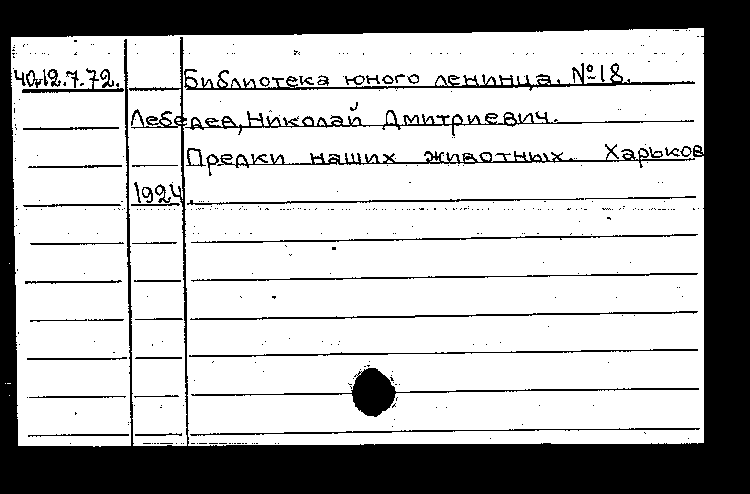 40.12.7.72. Библиотека юного ленинца. №18.
Лебедев, Николай Дмитриевич.
Предки наших животных. Харьков
1924.